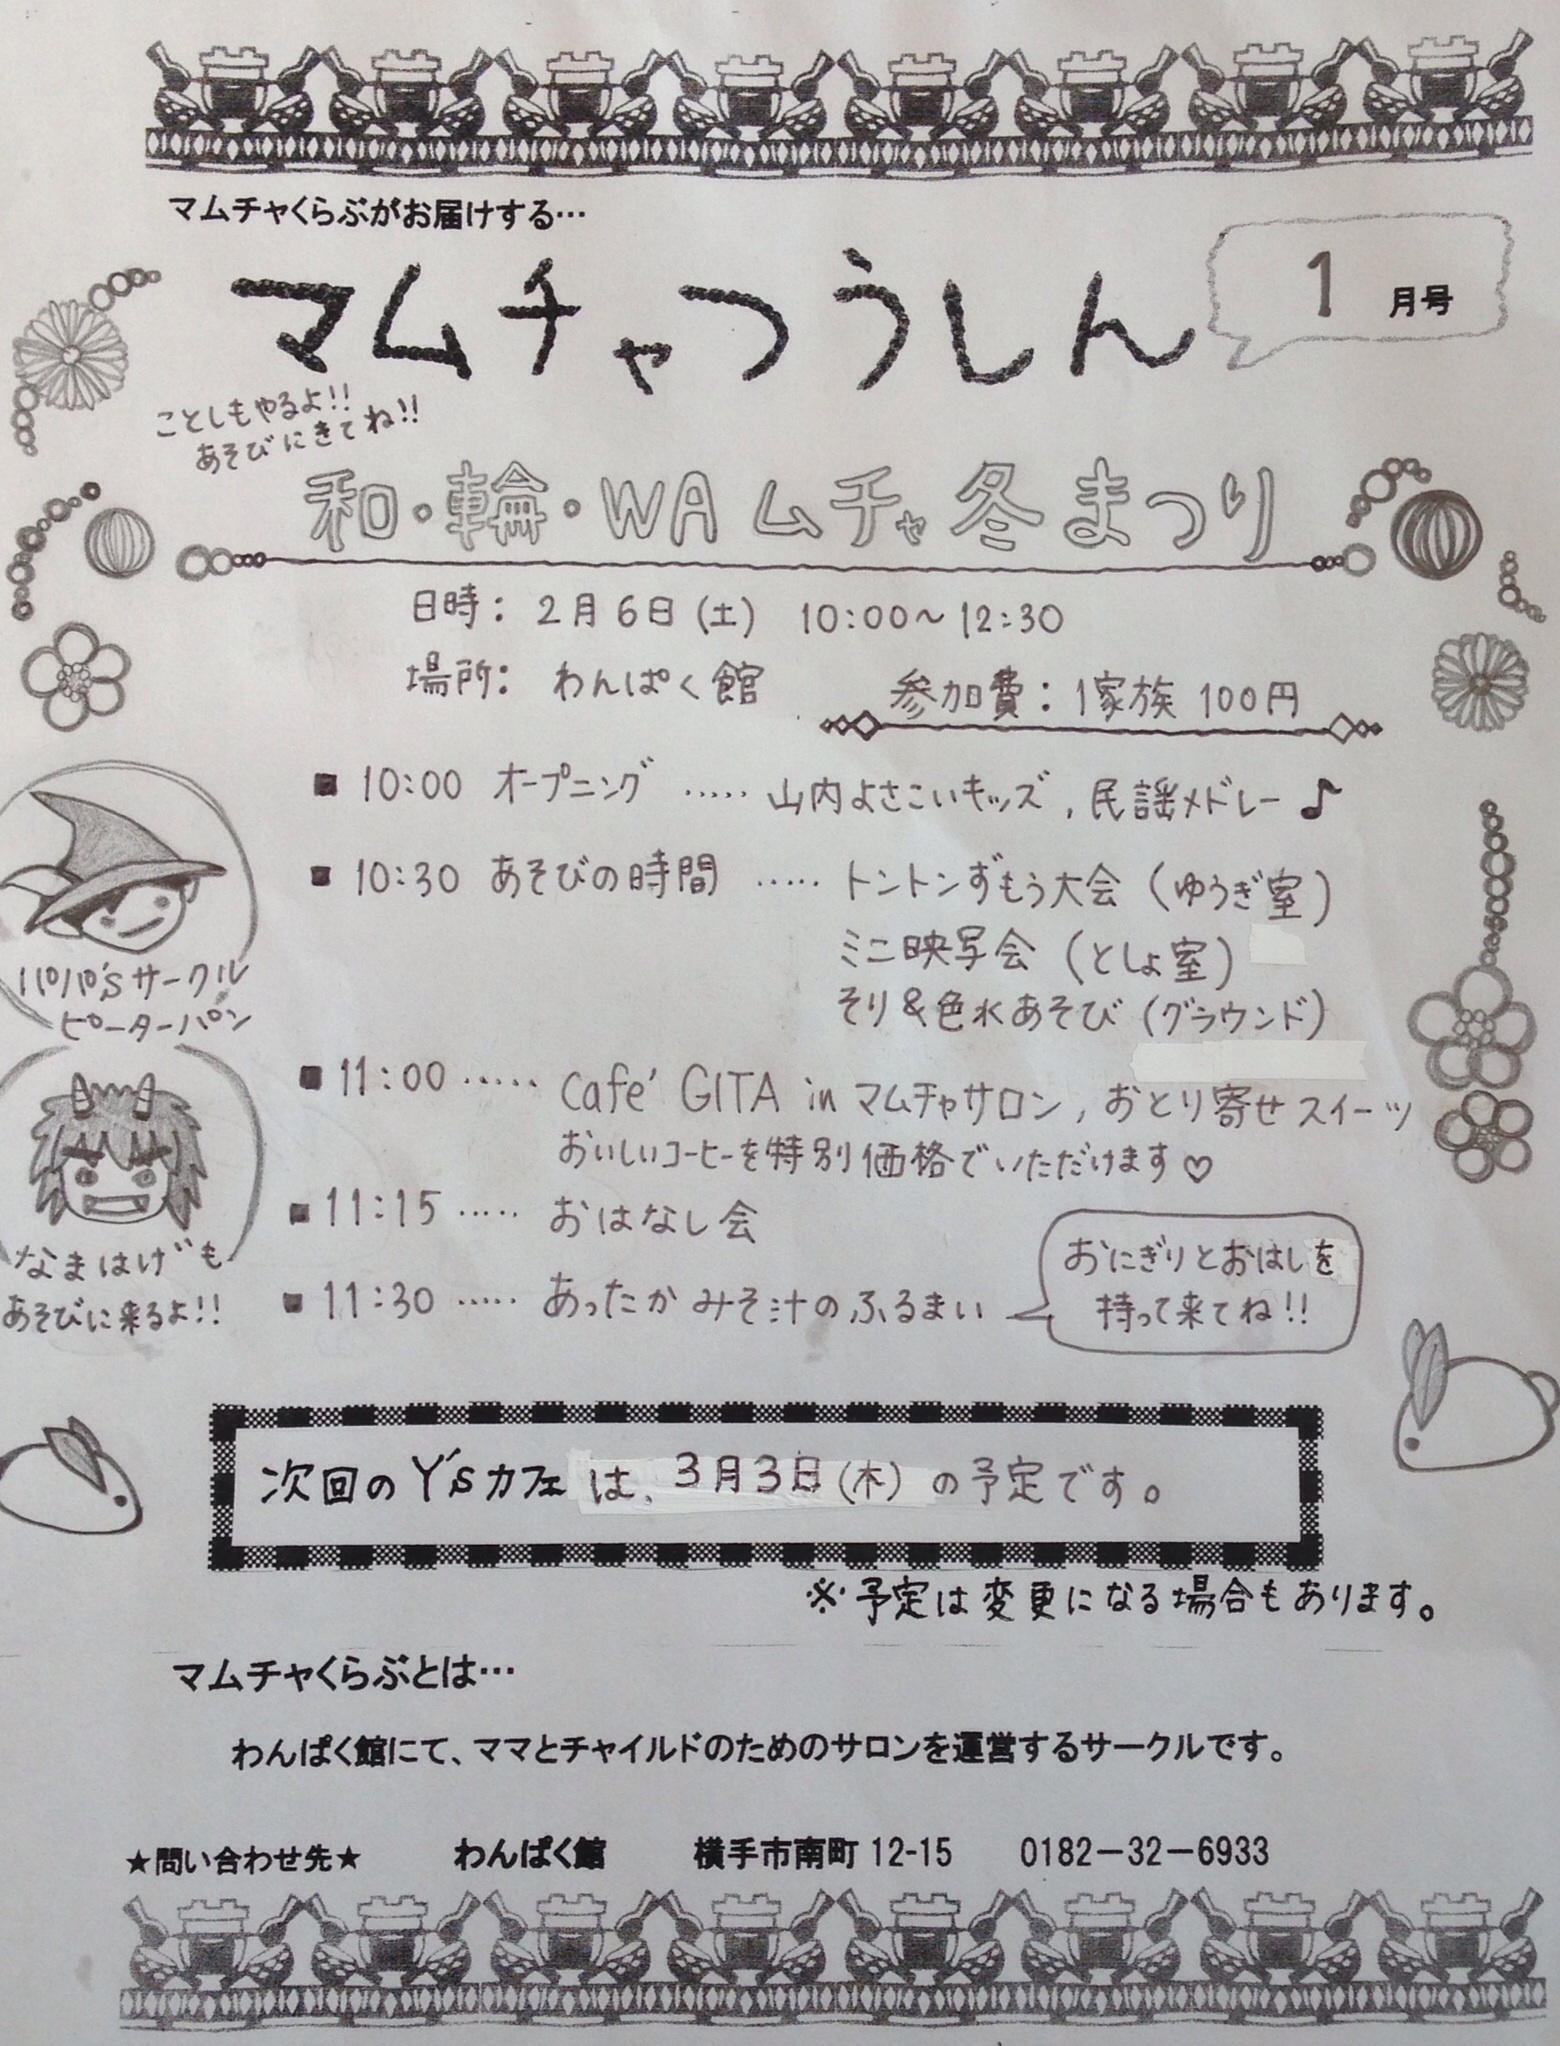 マムチャくらぶがお届けする…
マムチャつうしん
1月号
ことしもやるよ!!
あそびにきてね!!
和・輪・WAムチャ冬まつり
日時: 2月6日(土) 10:00～12:30
場所: わんぱく館
参加費:1家族 100円
■ 10:00 オープニング ..... 山内よさこいキッズ, 民謡メドレー♪
■ 10:30 あそびの時間 ..... トントンずもう大会(ゆうぎ室)
ミニ映写会(としょ室)
そり&色水あそび(グラウンド)
パパ'sサークル
ピーターパン
■ 11:00 ..... Cafe' GITA in マムチャサロン, おとり寄せスイーツ
おいしいコーヒーを特別価格でいただけます♡
■ 11:15 ..... おはなし会
なまはげも
あそびに来るよ!!
■ 11:30 ..... あったかみそ汁のふるまい
おにぎりとおはしを
持って来てね!!
次回のY'sカフェは、3月3日(木)の予定です。
※予定は変更になる場合もあります。
マムチャくらぶとは…
わんぱく館にて、ママとチャイルドのためのサロンを運営するサークルです。
★問い合わせ先★ わんぱく館 横手市南町12-15 0182－32－6933